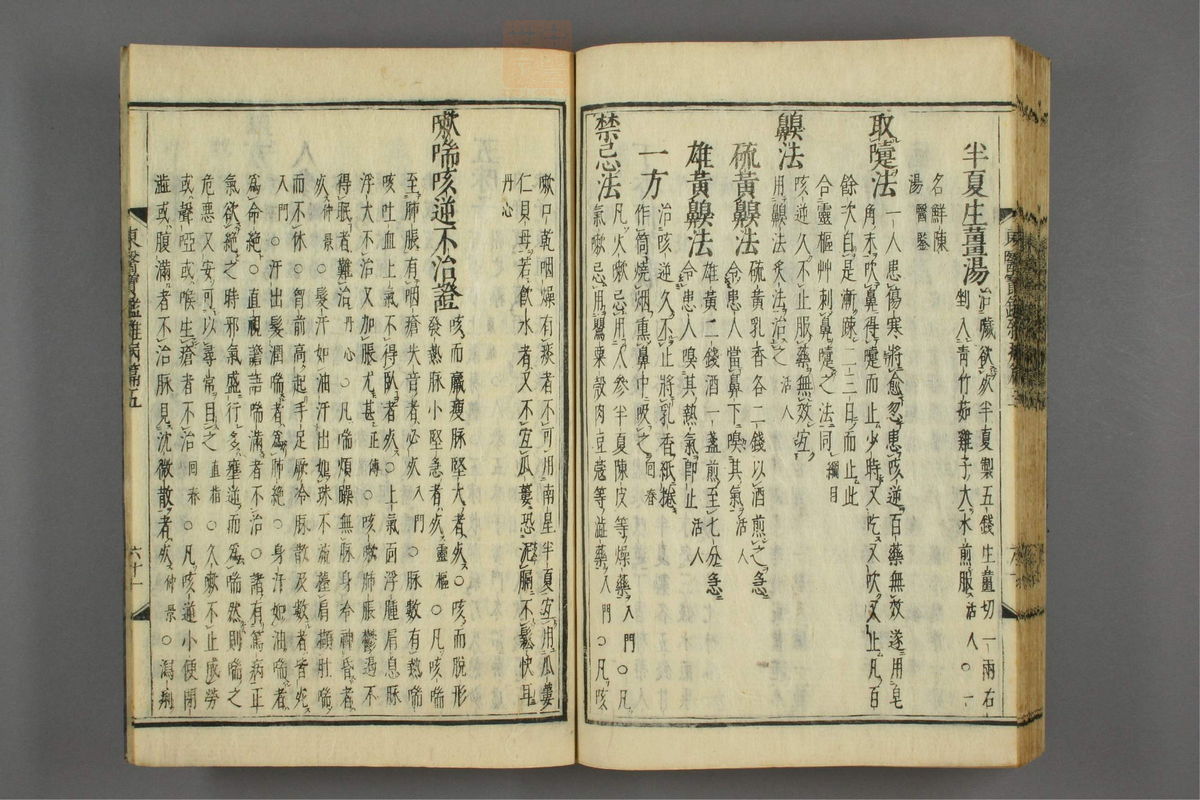 半夏生薑湯 治噦欲死半夏製五錢生薑切一兩右
剉入靑竹茹雞子大水煎服活人○一
名鮮陳
湯醫鑒
取嚔法 一人患傷寒將愈忽患咳逆百藥無效遂用皂
角末吹鼻得嚔而止少時又吃又吹又止凡百
餘次自是漸疎二三日而止此
合靈樞艸刺鼻嚔之法同綱目
嗅法 咳逆久不止服藥無效宜
用嗅法炙法治之活人
硫黃嗅法 硫黃乳香各二錢以酒煎之急
令患人當鼻下嗅其氣活人
雄黃嗅法 雄黃二錢酒一盞煎至七分急
令患人嗅其熱氣卽止活人
一方 治咳逆久不止將乳香紙捲
作筒燒烟熏鼻中吸之回春
禁忌法 凡火嗽忌用人參半夏陳皮等燥藥入門○凡
氣嗽忌用罌粟殼肉豆蔻等澁藥入門○凡咳
嗽口乾咽燥有痰者不可用南星半夏宜用瓜蔞
仁貝母若飮水者又不宜瓜蔞恐泥膈不鬆快耳
丹心
嗽喘咳逆不治證 咳而羸瘦脉堅大者死○咳而脫形
發熱脉小堅急者死靈樞○凡咳喘
至肺脹有咽瘡失音者必死入門○脉數有熱喘
咳吐血上氣不得臥者死○上氣面浮腫肩息脉
浮大不治又加脹尤甚正傳○咳嗽肺脹鬱遏不
得眠者難治丹心○凡喘煩躁無脉身冷神昏者
死仲景○髮汗如油汗出如珠不流擡肩擷肚喘
而不休○胷前高起手足厥冷脉散及數者皆死
入門○汗出髮潤喘者爲肺絶○身汗如油喘者
爲命絶○直視譫語喘滿者不治○諸有篤病正
氣欲絶之時邪氣盛行多壅逆而爲喘然則喘之
危惡又安可以尋常目之直指○久嗽不止成勞
或聲啞或喉生瘡者不治回春○凡咳逆小便閉
澁或腹滿者不治脉見沈微散者死仲景○瀉痢
東醫寶鑑雜病篇五
六十一